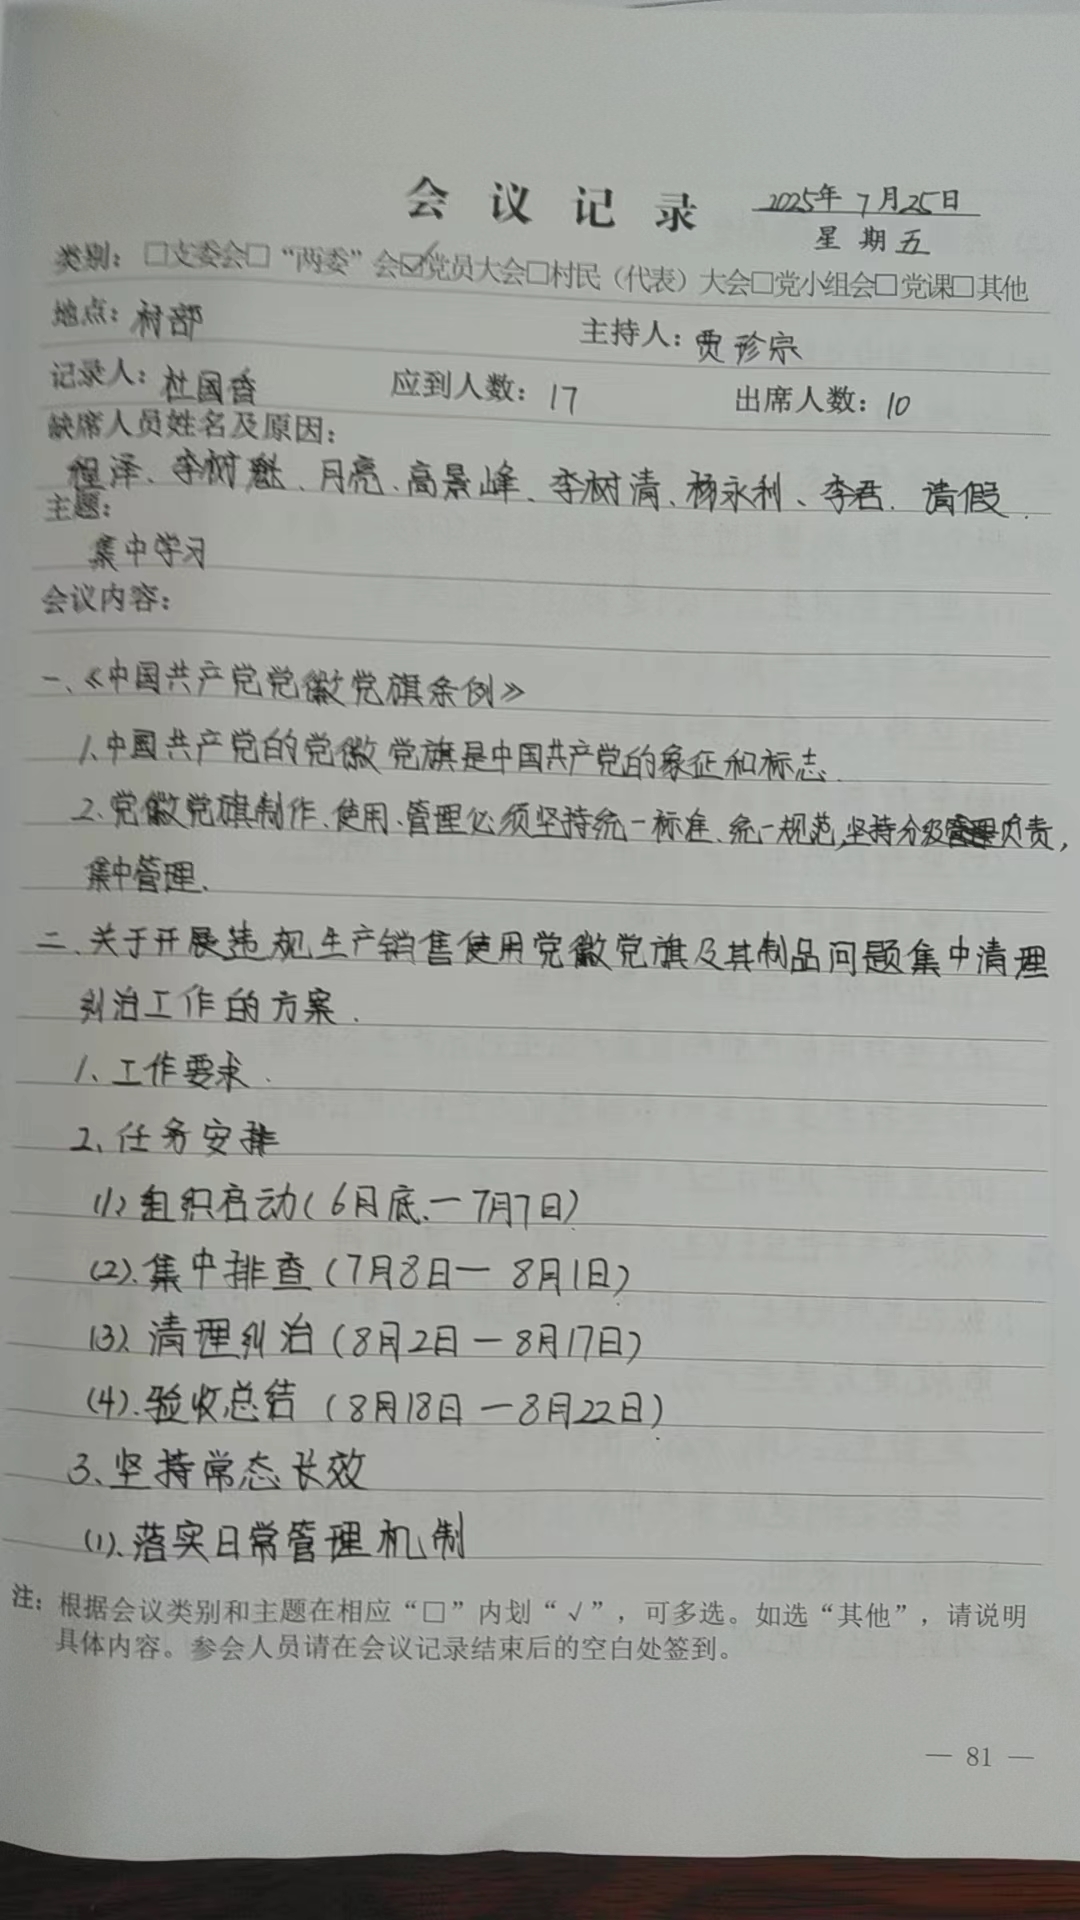 会议记录 2025年7月25日
星期五
类别：□支委会□“两委”会☑党员大会□村民（代表）大会□党小组会□党课□其他
地点：村部 主持人：贾珍宗
记录人：杜国香 应到人数：17 出席人数：10
缺席人员姓名及原因：
程泽、李树魁、月亮、高景峰、李树清、杨永利、李君. 请假.
主题：
集中学习
会议内容：
一、《中国共产党党徽党旗条例》
1、中国共产党的党徽党旗是中国共产党的象征和标志.
2、党徽党旗制作、使用、管理必须坚持统一标准、统一规范,坚持分级负责,
集中管理.
二、关于开展违规生产销售使用党徽党旗及其制品问题集中清理
纠治工作的方案.
1、工作要求.
2、任务安排
(1)、组织启动(6月底.一7月7日)
(2)、集中排查(7月8日一 8月1日)
(3)、清理纠治(8月2日一8月17日)
(4).验收总结 (8月18日一8月22日)
3、坚持常态长效
(1)、落实日常管理机制
注：根据会议类别和主题在相应“□”内划“√”，可多选。如选“其他”，请说明
具体内容。参会人员请在会议记录结束后的空白处签到。
— 81 —